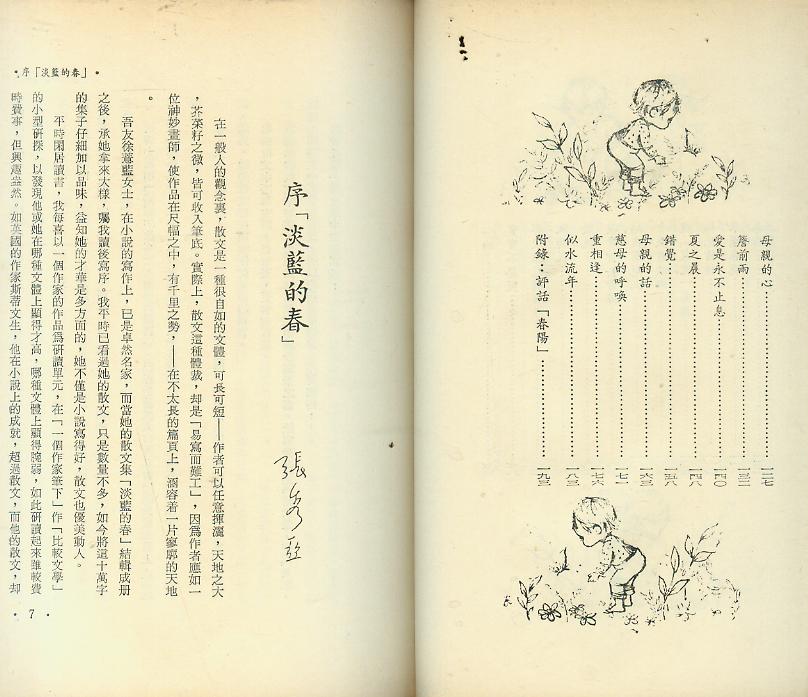 母親的心…………一二七
簷前雨…………一三二
愛是永不止息…………一四〇
夏之晨…………一四八
錯覺…………一五八
母親的話…………一六三
慈母的呼喚…………一七一
重相逢…………一七六
似水流年…………一八三
附錄：評話「春陽」…………一九三
序「淡藍的春」
張秀亞
在一般人的觀念裏，散文是一種很自如的文體，可長可短——作者可以任意揮灑，天地之大
，芥菜籽之微，皆可收入筆底。實際上，散文這種體裁，却是「易寫而難工」，因爲作者應如一
位神妙畫師，使作品在尺幅之中，有千里之勢，——在不太長的篇頁上，涵容着一片寥廓的天地
。
吾友徐薏藍女士，在小說的寫作上，已是卓然名家，而當她的散文集「淡藍的春」結輯成册
之後，承她拿來大樣，囑我讀後寫序。我平時已看過她的散文，只是數量不多，如今將這十萬字
的集子仔細加以品味，益知她的才華是多方面的，她不僅是小說寫得好，散文也優美動人。
平時閑居讀書，我每喜以一個作家的作品爲研讀單元，在「一個作家筆下」作「比較文學」
的小型研探，以發現他或她在哪種文體上顯得才高，哪種文體上顯得脆弱，如此研讀起來雖較費
時費事，但興趣盎然。如英國的作家斯蒂文生，他在小說上的成就，超過散文，而他的散文，却
•序「淡藍的春」•
• 7 •